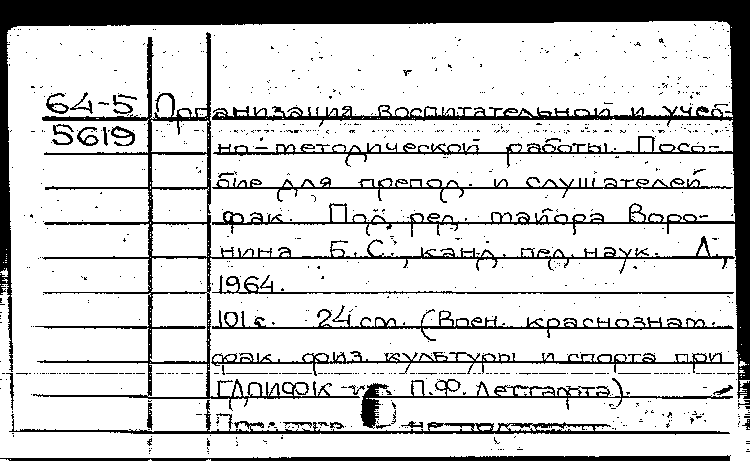 64-5 Организация воспитательной и учеб-
5619 но-методической работы. Посо-
бие для препод. и слушателей
фак. Под ред. майора Воро-
нина Б. С., канд. пед. наук. Л.,
1964.
101 с. 24 см. (Воен. краснознам.
фак. физ. культуры и спорта при
ГДОИФК им. П.Ф. Лесгафта).